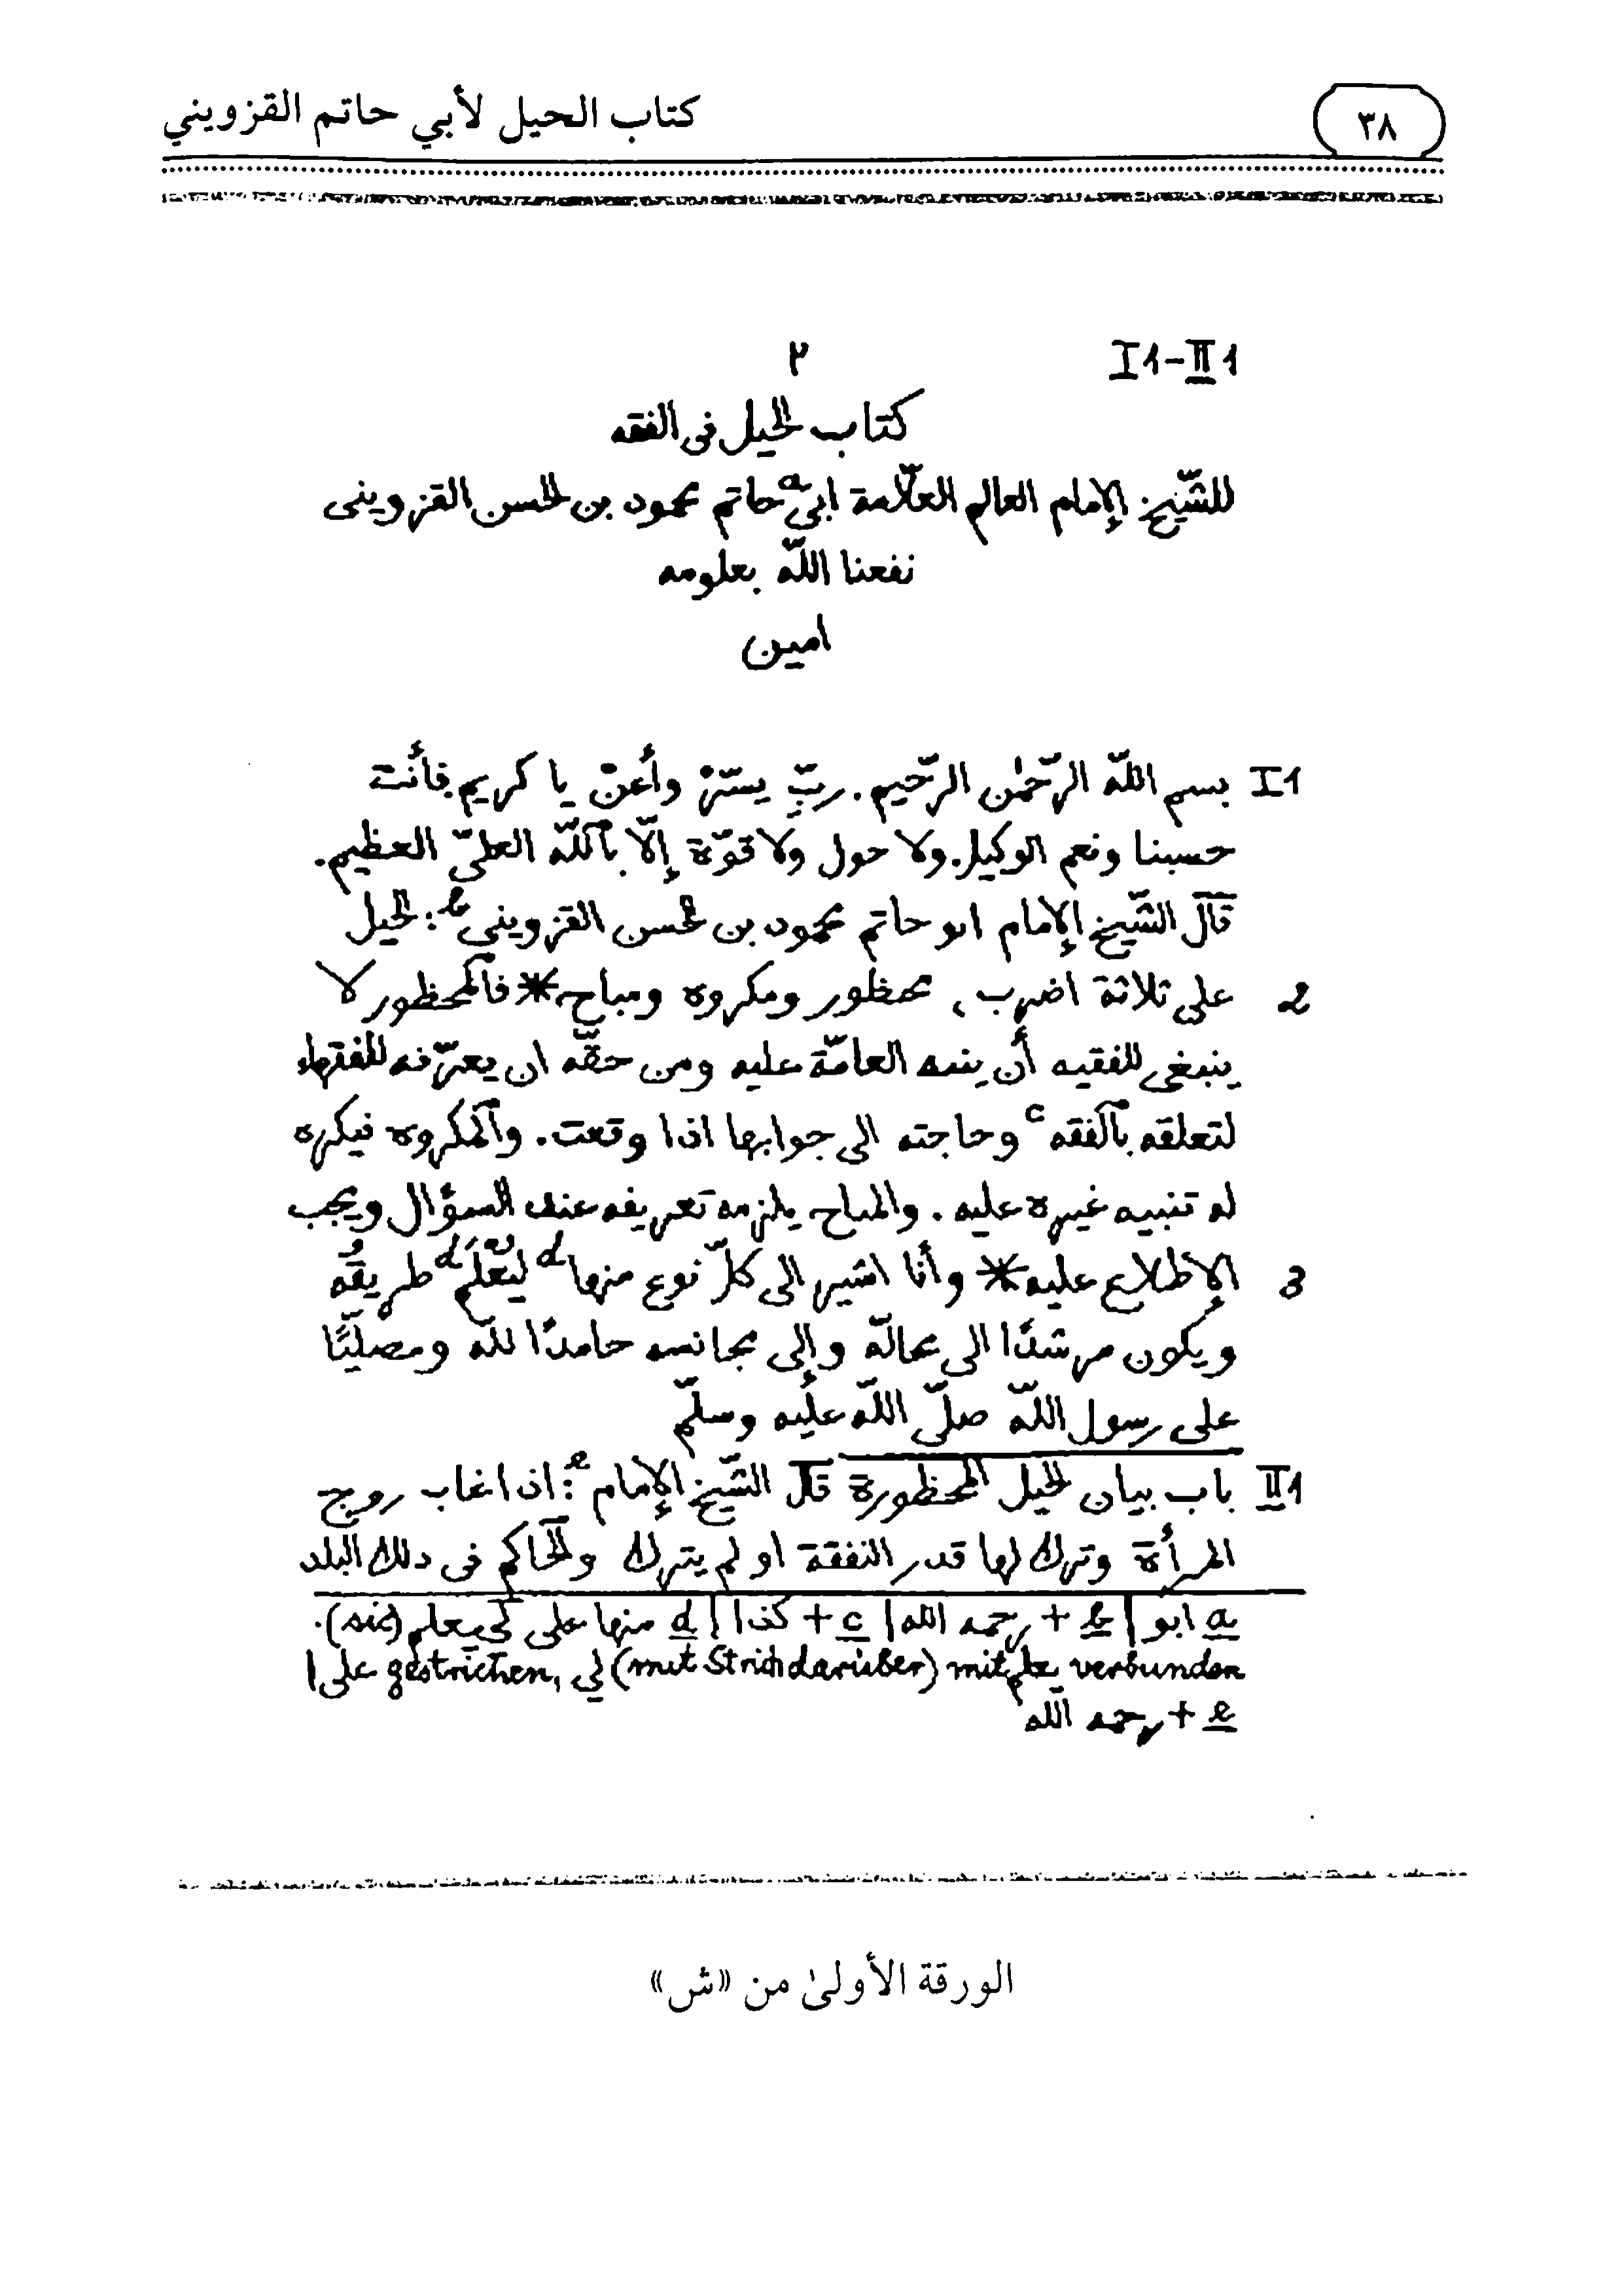 ٣٨
كتاب الحيل لأبي حاتم القزويني
I1-II1
٢
كتاب الحيل فى الفقه
للشّيخ الإمام العالم العلّامة ابىa حاتم محمود بن الحسن القزوينى
نفعنا اللّه بعلومه
امين
I1 بسم اللّه الرّحمٰن الرّحيم. ربّ يسّرْ وأعنْ يا كريم فأنت
حسبنا ونعم الوكيل. ولا حول ولا قوّة إلّا بٱللّه العلىّ العظيم.
قال الشّيخ الإمام ابو حاتم محمود بن الحسن القزوينىb: الحيل
2 على ثلاثة اضرب، محظور ومكروه ومباح* فٱلمحظور لا
ينبغى للفقيه أن ينبه العامّة عليه ومن حقّه ان يعرّفه للفقهاء
لتعلقه بٱلفقهc وحاجته الى جوابها اذا وقعت. وٱلمكروه فيكره
له تنبيه غيره عليه. والمباح يلزمه تعريفه عند السؤال ويجب
3 الإطّلاع عليه* وأنا اشير الى كلّ نوع منهاd ليُعْلَمَd طريقُه
ويكون مرشدًا الى محالّه وإلى مجانسه حامدًا للّه ومصلّيًا
على رسول اللّه صلّى اللّه عليه وسلّم
II1 باب بيان الحيل المحظورة قال الشّيخ الإمامe: اذا غاب زوج
المرأة وترك لها قدر النفقة او لم يترك وٱلحاكم فى ذلك البلد
a ابو | b + رحمه الله | c + كذا | d منها على لى يعلم (sic).
على gestrichen, لى (mit Strich darüber) mit يعلم verbunden |
e + رحمه اللّه
الورقة الأولىٰ من «ش»